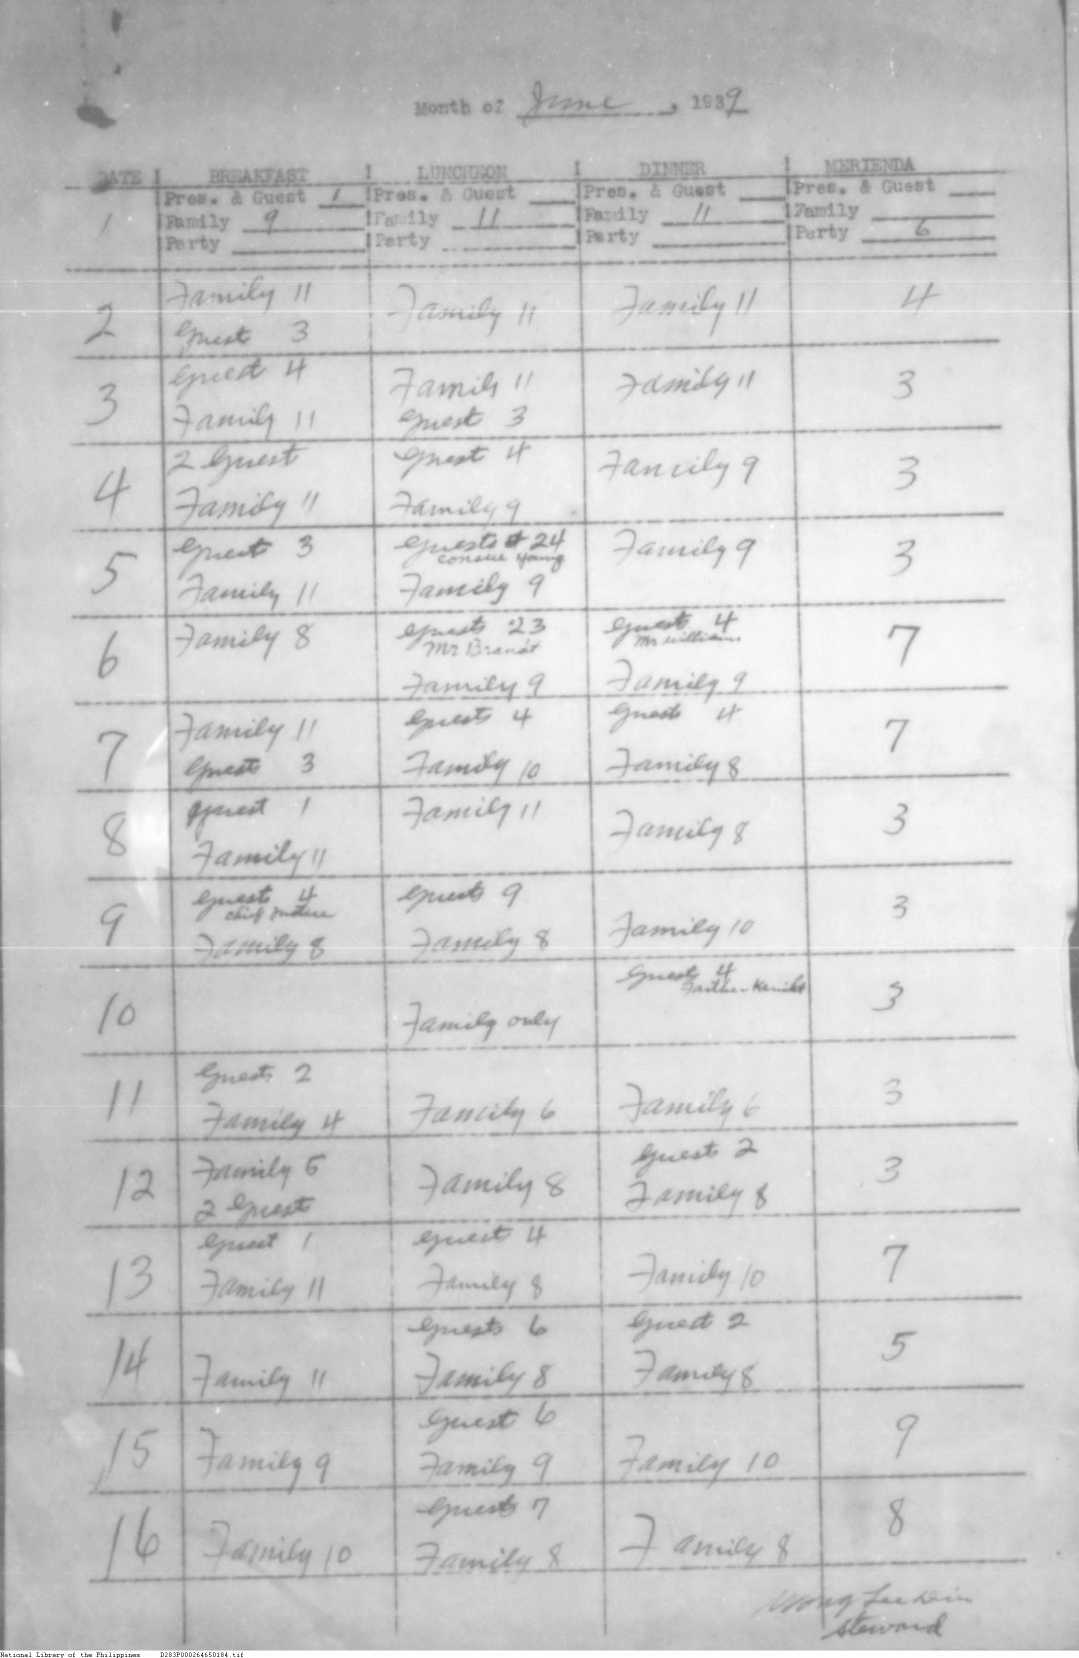 Month of June, 1939
DATE ! BREAKFAST ! LUNCHEON ! DINNER ! MERIENDA
1 Pres. & Guest 1 Pres. & Guest ___ Pres. & Guest ___ Pres. & Guest ___
Family 9 Family 11 Family 11 Family ___
Party ___ Party ___ Party ___ Party 6
2 Family 11 Family 11 Family 11 4
Guest 3
3 Guest 4 Family 11 Family 11 3
Family 11 Guest 3
4 2 Guest Guest 4 Family 9 3
Family 11 Family 9
5 Guest 3 Guests 24 Family 9 3
Young
Family 11 Family 9
6 Family 8 Guests 23 Guest 4 7
Mr Brandt Mr Williams
Family 9 Family 9
7 Family 11 Guests 4 Guests 4 7
Guests 3 Family 10 Family 8
8 Guest 1 Family 11 Family 8 3
Family 11
9 Guests 4 Guests 9 Family 10 3
Chief
Family 8 Family 8
10 Family only Guest 4 3
11 Guests 2 Family 6 Family 6 3
Family 4
12 Family 5 Family 8 Guests 2 3
2 Guest Family 8
13 Guest 1 Guest 4 Family 10 7
Family 11 Family 8
14 Family 11 Guests 6 Guest 2 5
Family 8 Family 8
15 Family 9 Guest 6 Family 10 9
Family 9
16 Family 10 Guests 7 Family 8 8
Family 8
Wong
Steward
National Library of the Philippines D283P000264650184.tif